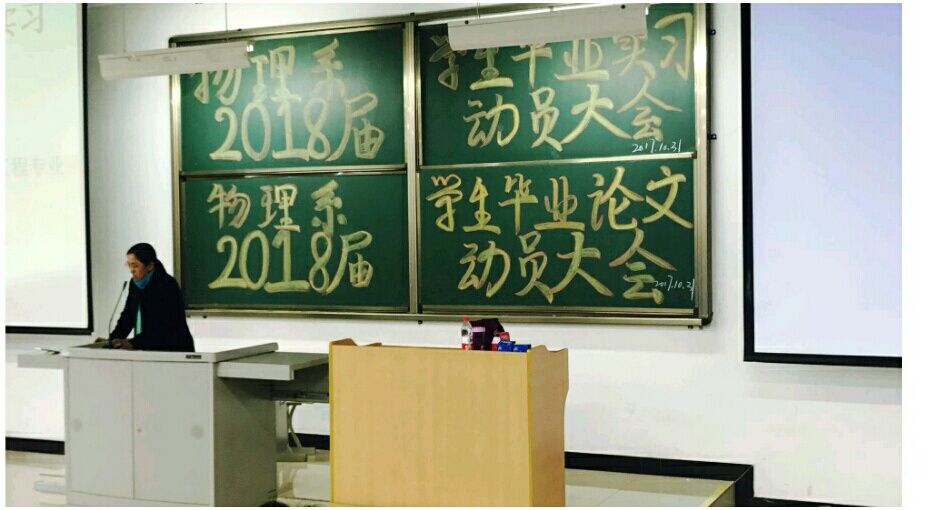 物理系
2018届
学生毕业实习
动员大会
2017.10.31
物理系
2018届
学生毕业论文
动员大会
2017.10.31
实习
工程专业